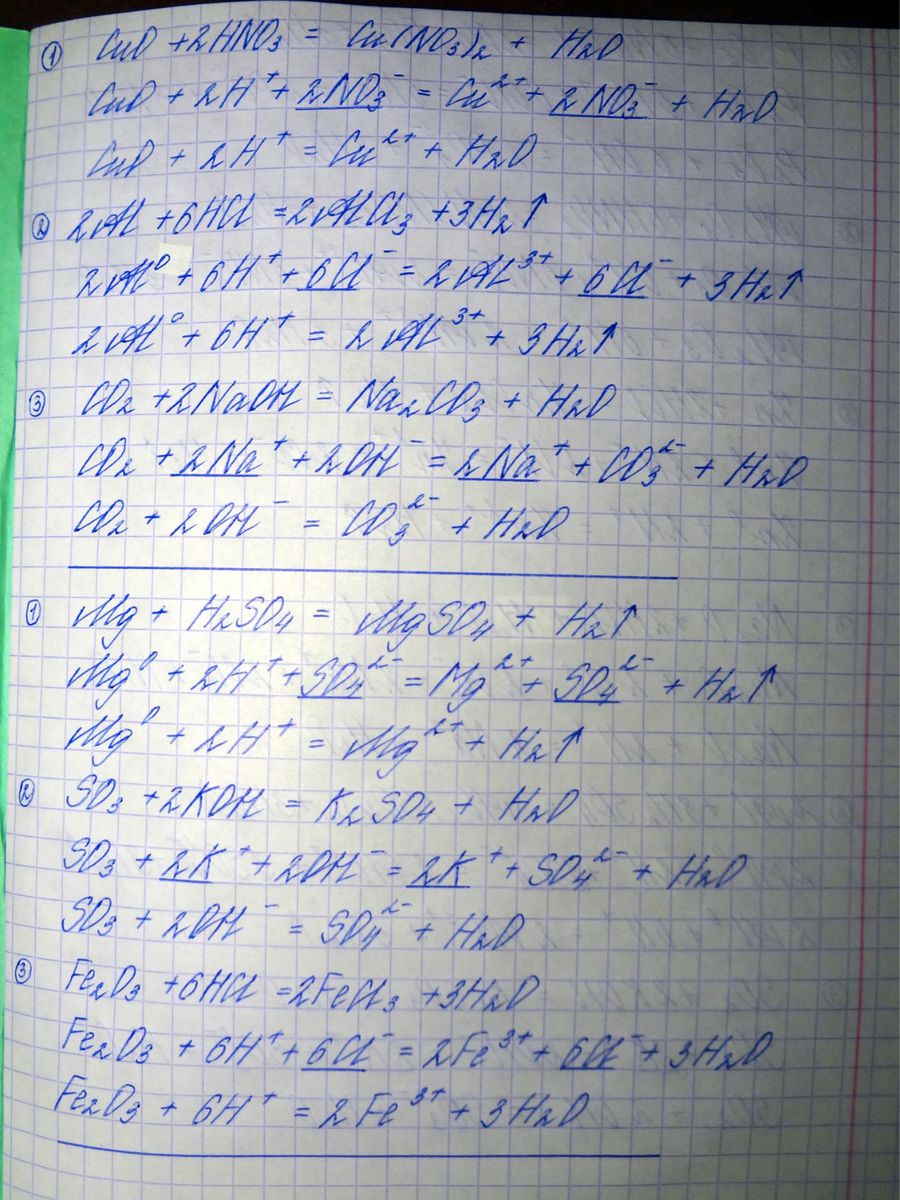 ① CuO + 2HNO₃ = Cu(NO₃)₂ + H₂O
CuO + 2H⁺ + 2NO₃⁻ = Cu²⁺ + 2NO₃⁻ + H₂O
CuO + 2H⁺ = Cu²⁺ + H₂O
② 2Al + 6HCl = 2AlCl₃ + 3H₂↑
2Al⁰ + 6H⁺ + 6Cl⁻ = 2Al³⁺ + 6Cl⁻ + 3H₂↑
2Al⁰ + 6H⁺ = 2Al³⁺ + 3H₂↑
③ CO₂ + 2NaOH = Na₂CO₃ + H₂O
CO₂ + 2Na⁺ + 2OH⁻ = 2Na⁺ + CO₃²⁻ + H₂O
CO₂ + 2OH⁻ = CO₃²⁻ + H₂O
① Mg + H₂SO₄ = MgSO₄ + H₂↑
Mg⁰ + 2H⁺ + SO₄²⁻ = Mg²⁺ + SO₄²⁻ + H₂↑
Mg⁰ + 2H⁺ = Mg²⁺ + H₂↑
② SO₃ + 2KOH = K₂SO₄ + H₂O
SO₃ + 2K⁺ + 2OH⁻ = 2K⁺ + SO₄²⁻ + H₂O
SO₃ + 2OH⁻ = SO₄²⁻ + H₂O
③ Fe₂O₃ + 6HCl = 2FeCl₃ + 3H₂O
Fe₂O₃ + 6H⁺ + 6Cl⁻ = 2Fe³⁺ + 6Cl⁻ + 3H₂O
Fe₂O₃ + 6H⁺ = 2Fe³⁺ + 3H₂O